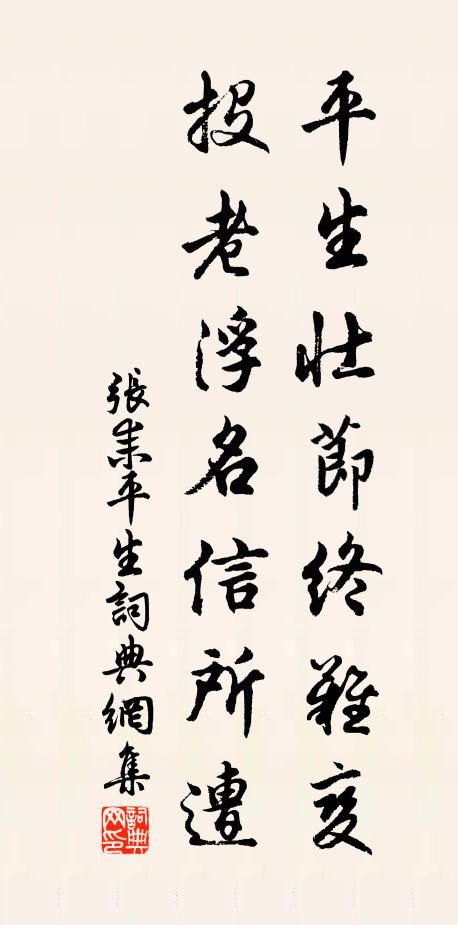 平生壮節終難変
投老浮名信所遭
張耒平生詞典網集
詞典網印